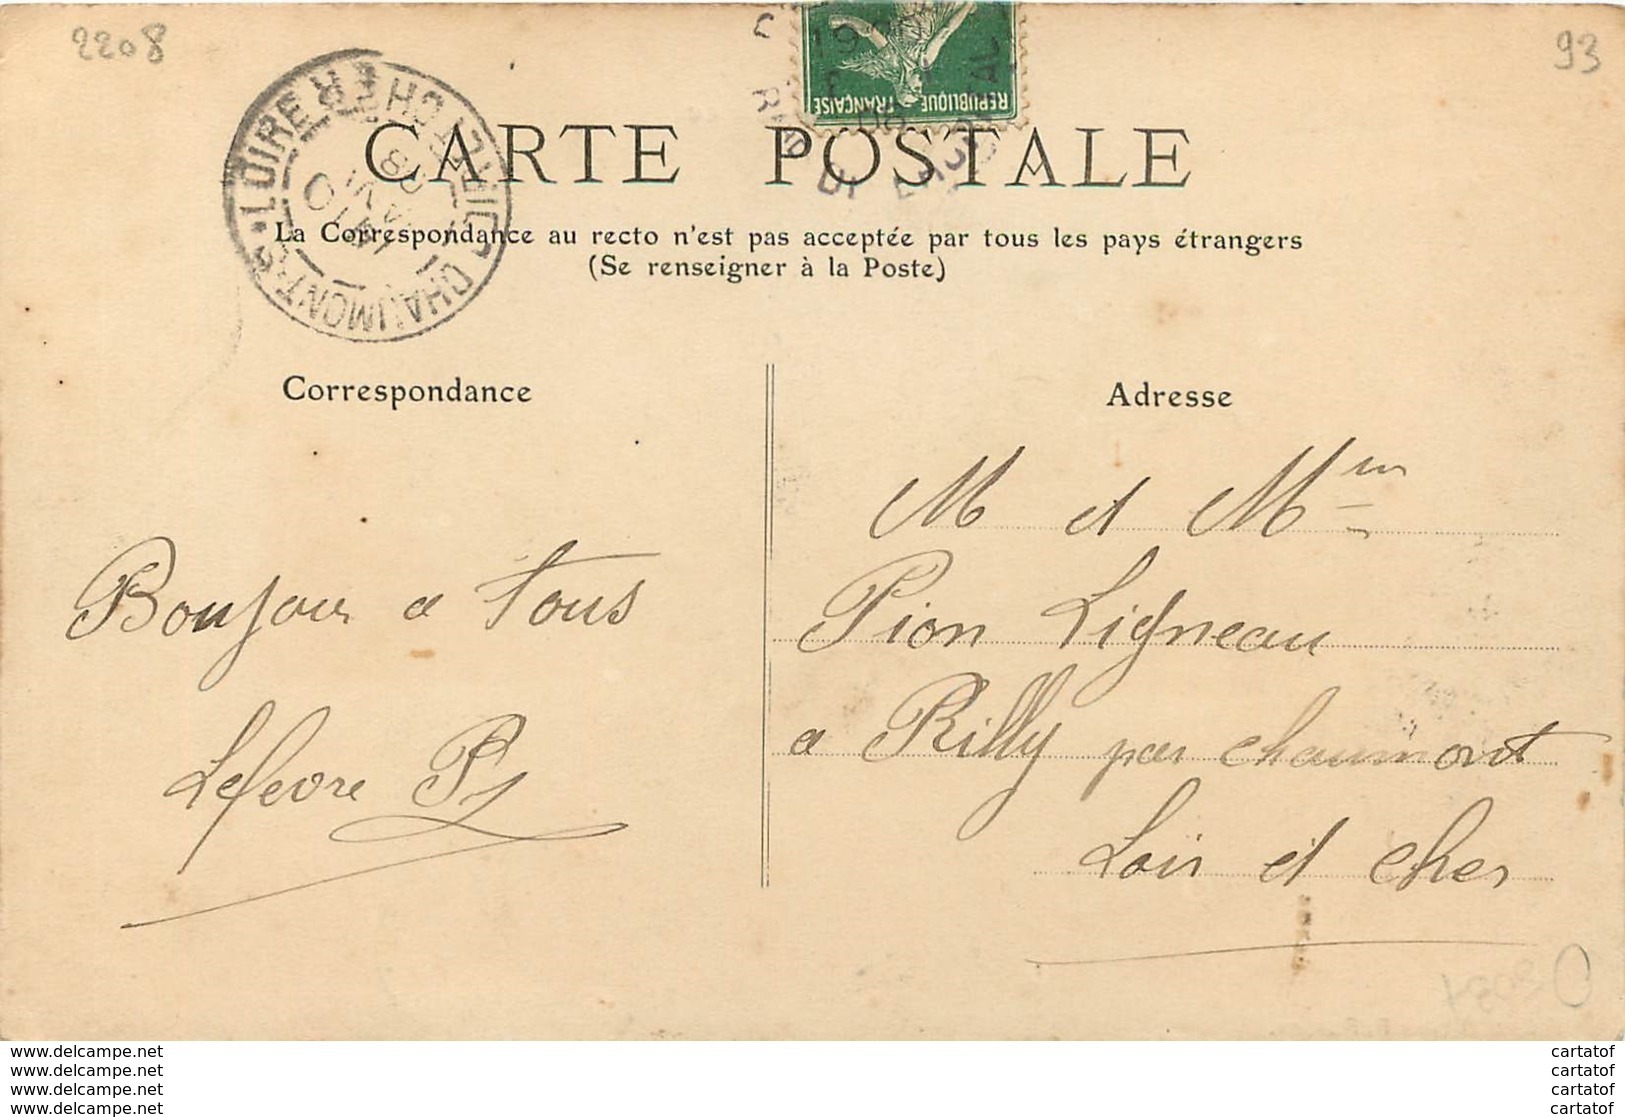 2208
93
RÉPUBLIQUE FRANÇAISE
CHAUMONT-S-LOIRE
LOIR-ET-CHER
CARTE POSTALE
La Correspondance au recto n'est pas acceptée par tous les pays étrangers
(Se renseigner à la Poste)
Correspondance
Adresse
Bonjour a Tous
Lefevre P
M et Mme
Pion Ligneau
a Rilly par Chaumont
Loir et Cher
www.delcampe.net
www.delcampe.net
www.delcampe.net
www.delcampe.net
cartatof
cartatof
cartatof
cartatof